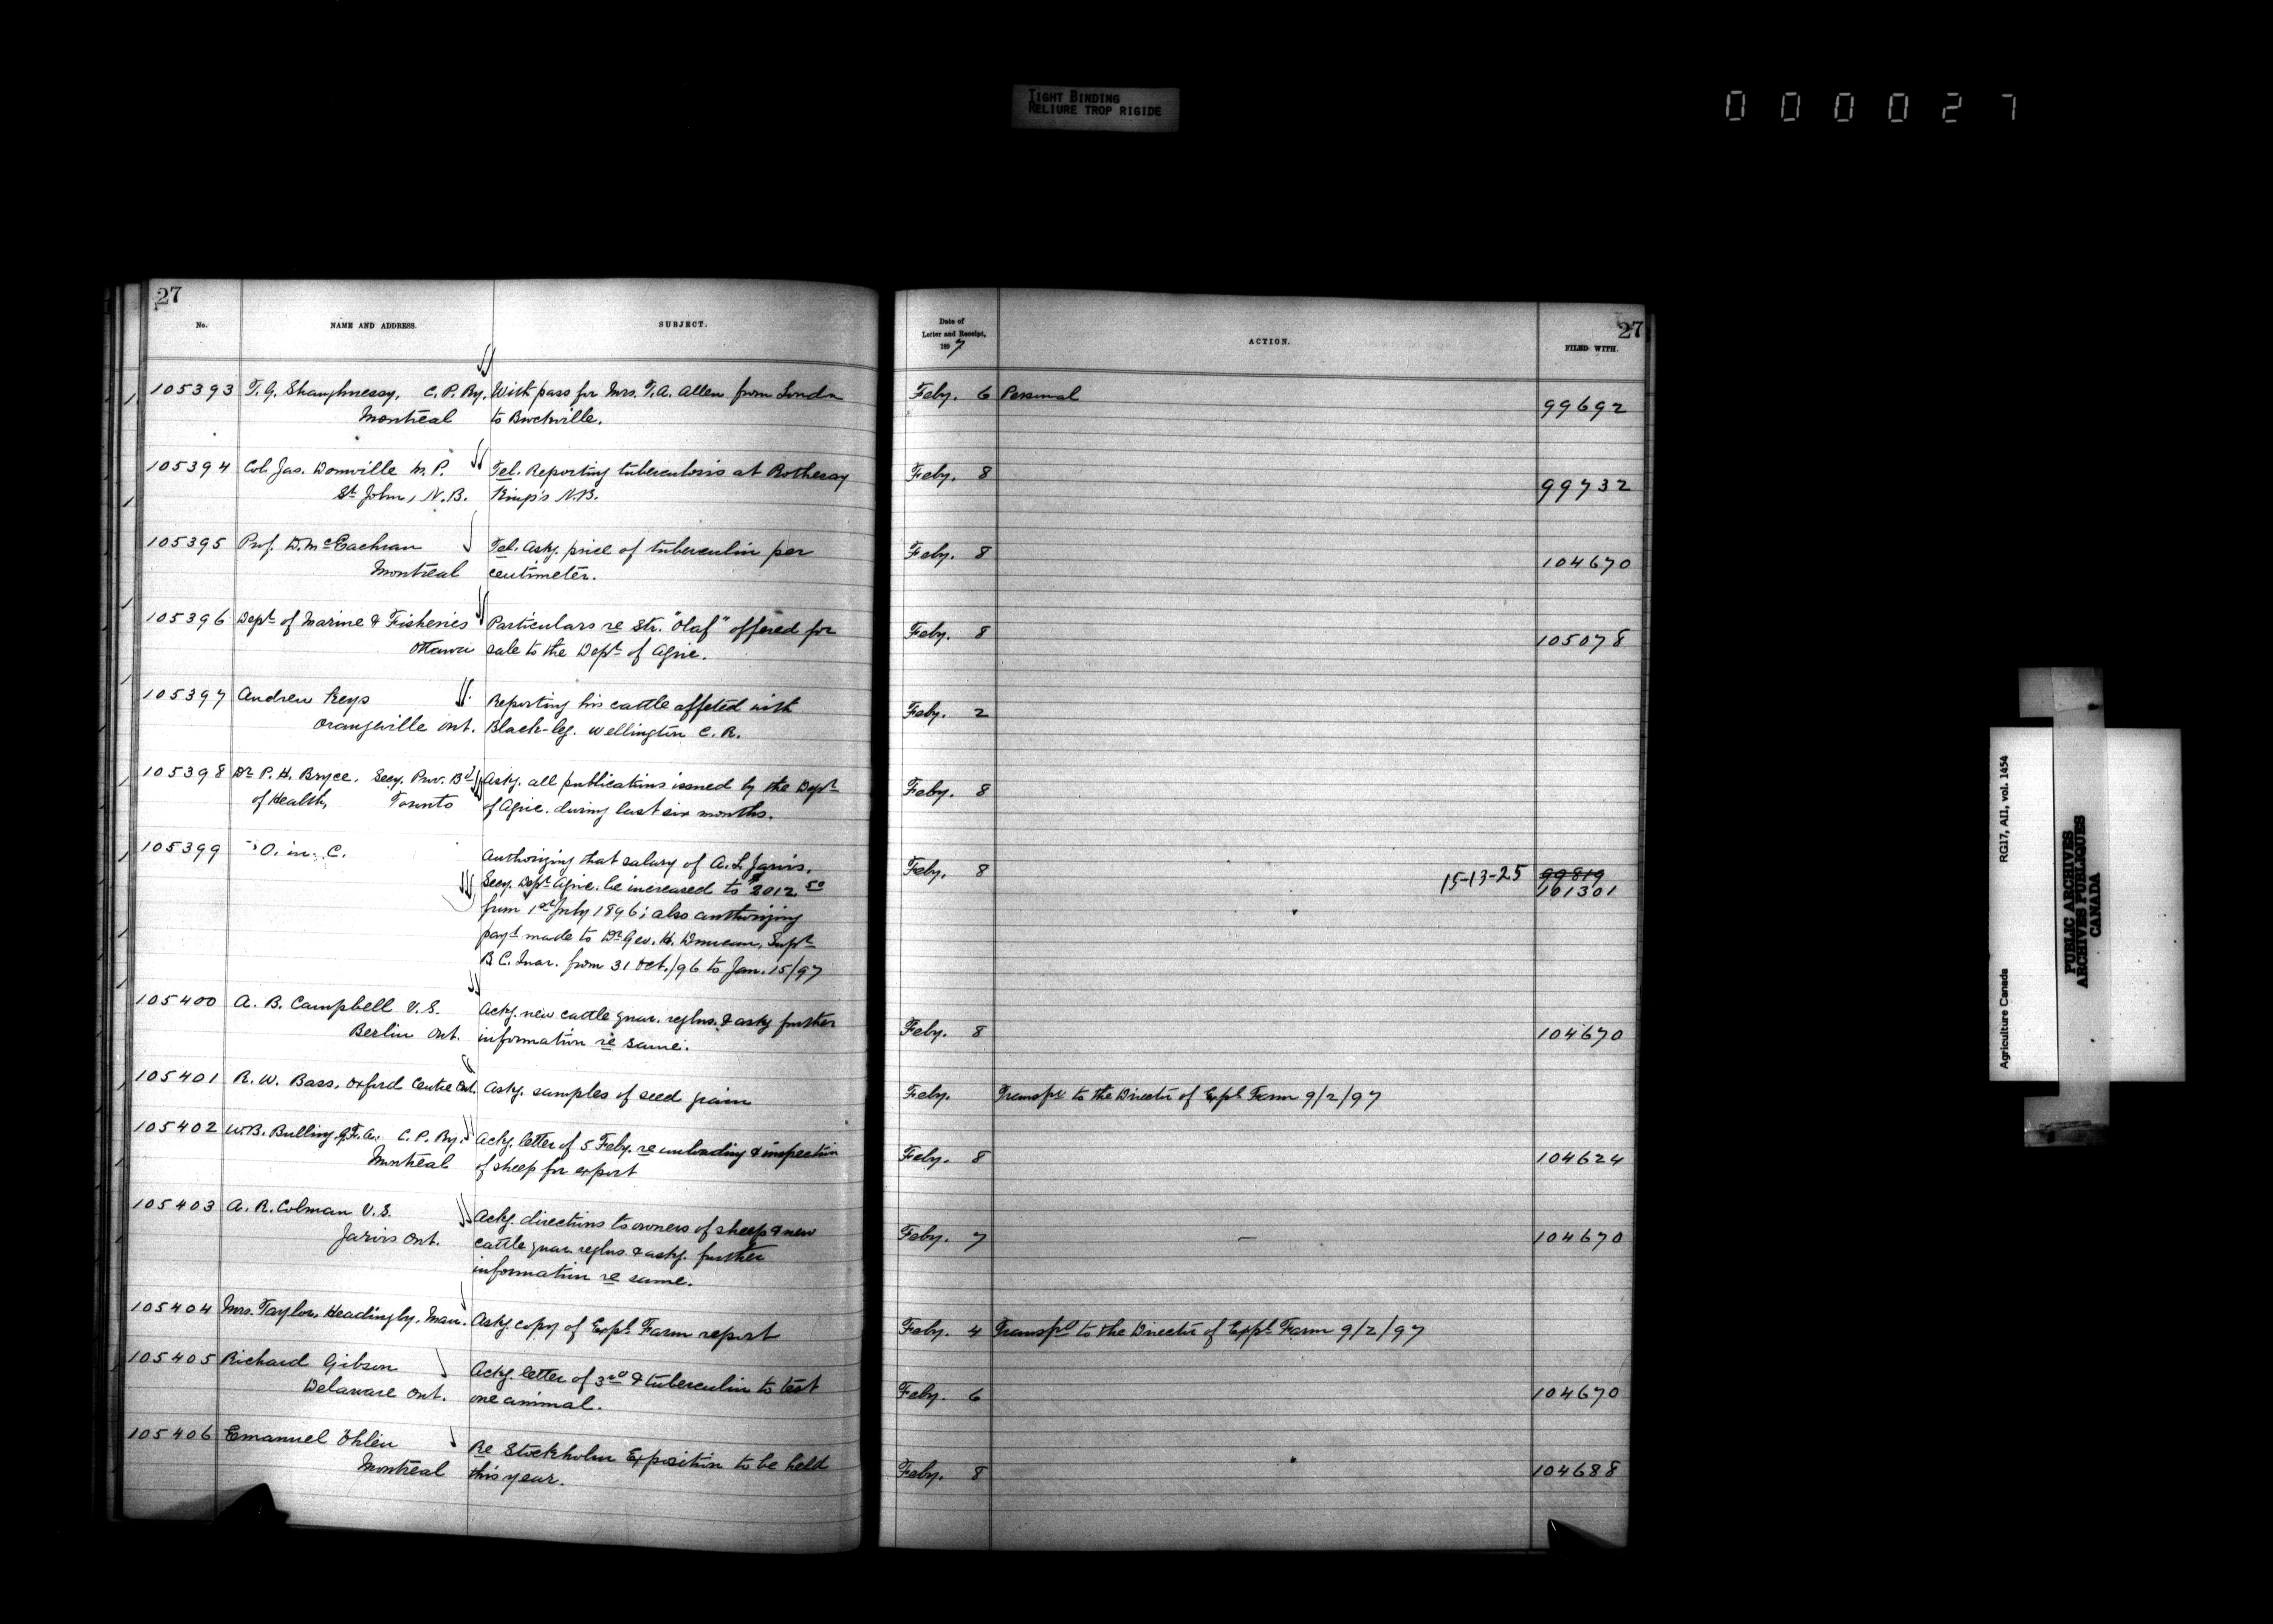 TIGHT BINDING
RELIURE TROP RIGIDE
0 0 0 0 2 7
27
No. NAME AND ADDRESS. SUBJECT.
105393 T. G. Shaughnessy, C. P. Ry. With pass for Mrs. T. A. Allen from London
Montreal to Brockville.
105394 Col. Jas. Domville M. P. Tel. Reporting tuberculosis at Rothesay
St John, N. B. King's N.B.
105395 Prof. D. McEachran Tel. Askg. price of tuberculin per
Montreal centimeter.
105396 Dept of Marine & Fisheries Particulars re Str. "Olaf" offered for
Ottawa sale to the Dept of Agric.
105397 Andrew Keys Reporting his cattle affeted with
Orangeville Ont. Black-leg. Wellington C. R.
105398 Dr P. H. Bryce, Secy. Prov. Bd Askg. all publications issued by the Dept
of Health, Toronto of Agric. during last six months.
105399 O. in. C. Authorizing that salary of A. L. Jarvis,
Secy. Dept Agric. be increased to $2012.50
from 1st July 1896; also authorizing
payt made to Dr Geo. H. Duncan, Supt
B C. Quar. from 31 Oct./96 to Jan. 15/97
105400 A. B. Campbell V. S. Ackg. new cattle quar. reglns. & askg further
Berlin Ont. information re same.
105401 R. W. Bass, Oxford Centre Ont. Askg. samples of seed grain
105402 W. B. Bulling, G.F.A. C. P. Ry. Ackg. letter of 5 Feby. re unloading & inspection
Montreal of sheep for export
105403 A. R. Colman V. S. Ackg. directions to owners of sheep & new
Jarvis Ont. cattle quar. reglns. & askg. further
information re same.
105404 Mrs. Taylor, Headingly. Man. Askg copy of Expl. Farm report
105405 Richard Gibson Ackg. letter of 3rd & tuberculin to test
Delaware Ont. one animal.
105406 Emanuel Öhlén Re Stockholm Exposition to be held
Montreal this year.
27
Date of
Letter and Receipt,
1897 ACTION. FILED WITH.
Feby. 6 Personal 99692
Feby. 8 99732
Feby. 8 104670
Feby. 8 105078
Feby. 2
Feby. 8
Feby. 8 15-13-25 99819
161301
Feby. 8 104670
Feby. Transfd to the Director of Expl. Farm 9/2/97
Feby. 8 104624
Feby. 7 104670
Feby. 4 Transfd to the Director of Expl. Farm 9/2/97
Feby. 6 104670
Feby. 8 104688
Agriculture Canada RG17, AII, vol. 1454
PUBLIC ARCHIVES
ARCHIVES PUBLIQUES
CANADA